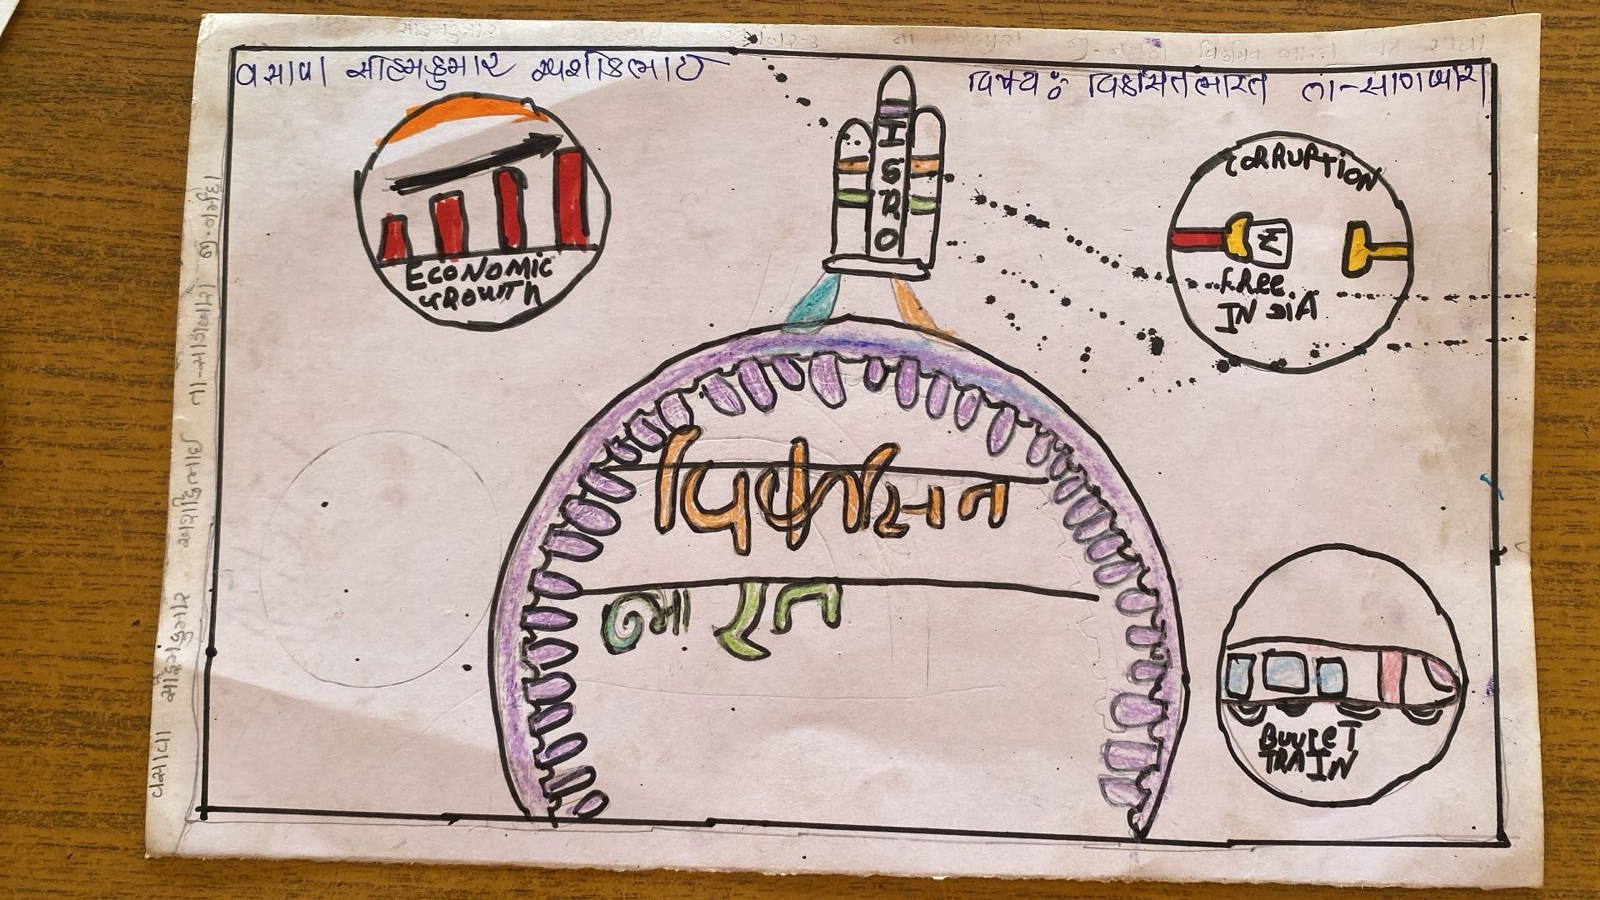 વસાવા સોહમકુમાર
વિષય: વિકસિત ભારત તા-સાગબારા
ISRO
ECONOMIC
GROWTH
CORRUPTION
₹
FREE
INDIA
विकसित
भारत
BULLET
TRAIN
વસાવા સોહમકુમાર તા-સાગબારા જી.નર્મદા